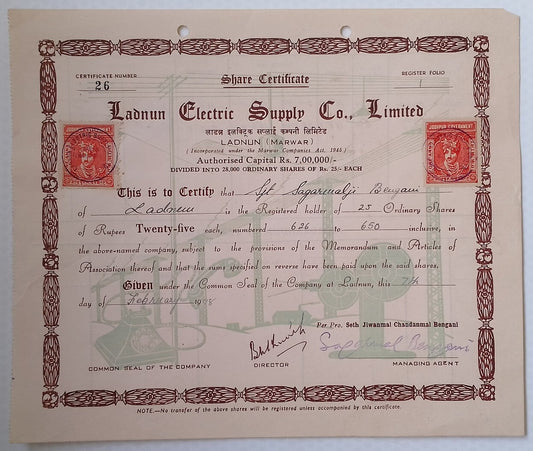 CERTIFICATE NUMBER
26
Share Certificate
REGISTER FOLIO
1
Ladnun Electric Supply Co., Limited
लाडनू इलक्ट्रिक सप्लाई कम्पनी लिमिटेड
LADNUN (MARWAR)
(Incorporated under the Marwar Companies Act, 1945)
Authorised Capital Rs. 7,00,000/-
DIVIDED INTO 28,000 ORDINARY SHARES OF Rs. 25/- EACH
JODHPUR GOVERNMENT
JODHPUR GOVERNMENT
This is to Certify that Sjt. Sagarmalji Bengani
of Ladnun is the Registered holder of 25 Ordinary Shares
of Rupees Twenty-five each, numbered 626 to 650 inclusive, in
the above-named company, subject to the provisions of the Memorandum and Articles of
Association thereof and that the sums specified on reverse have been paid upon the said shares.
Given under the Common Seal of the Company at Ladnun, this 7th
day of February 1948
Per Pro. Seth Jiwanmal Chandanmal Bengani
Sagarmal Bengani
COMMON SEAL OF THE COMPANY
DIRECTOR
MANAGING AGENT
NOTE.—No transfer of the above shares will be registered unless accompanied by this certificate.